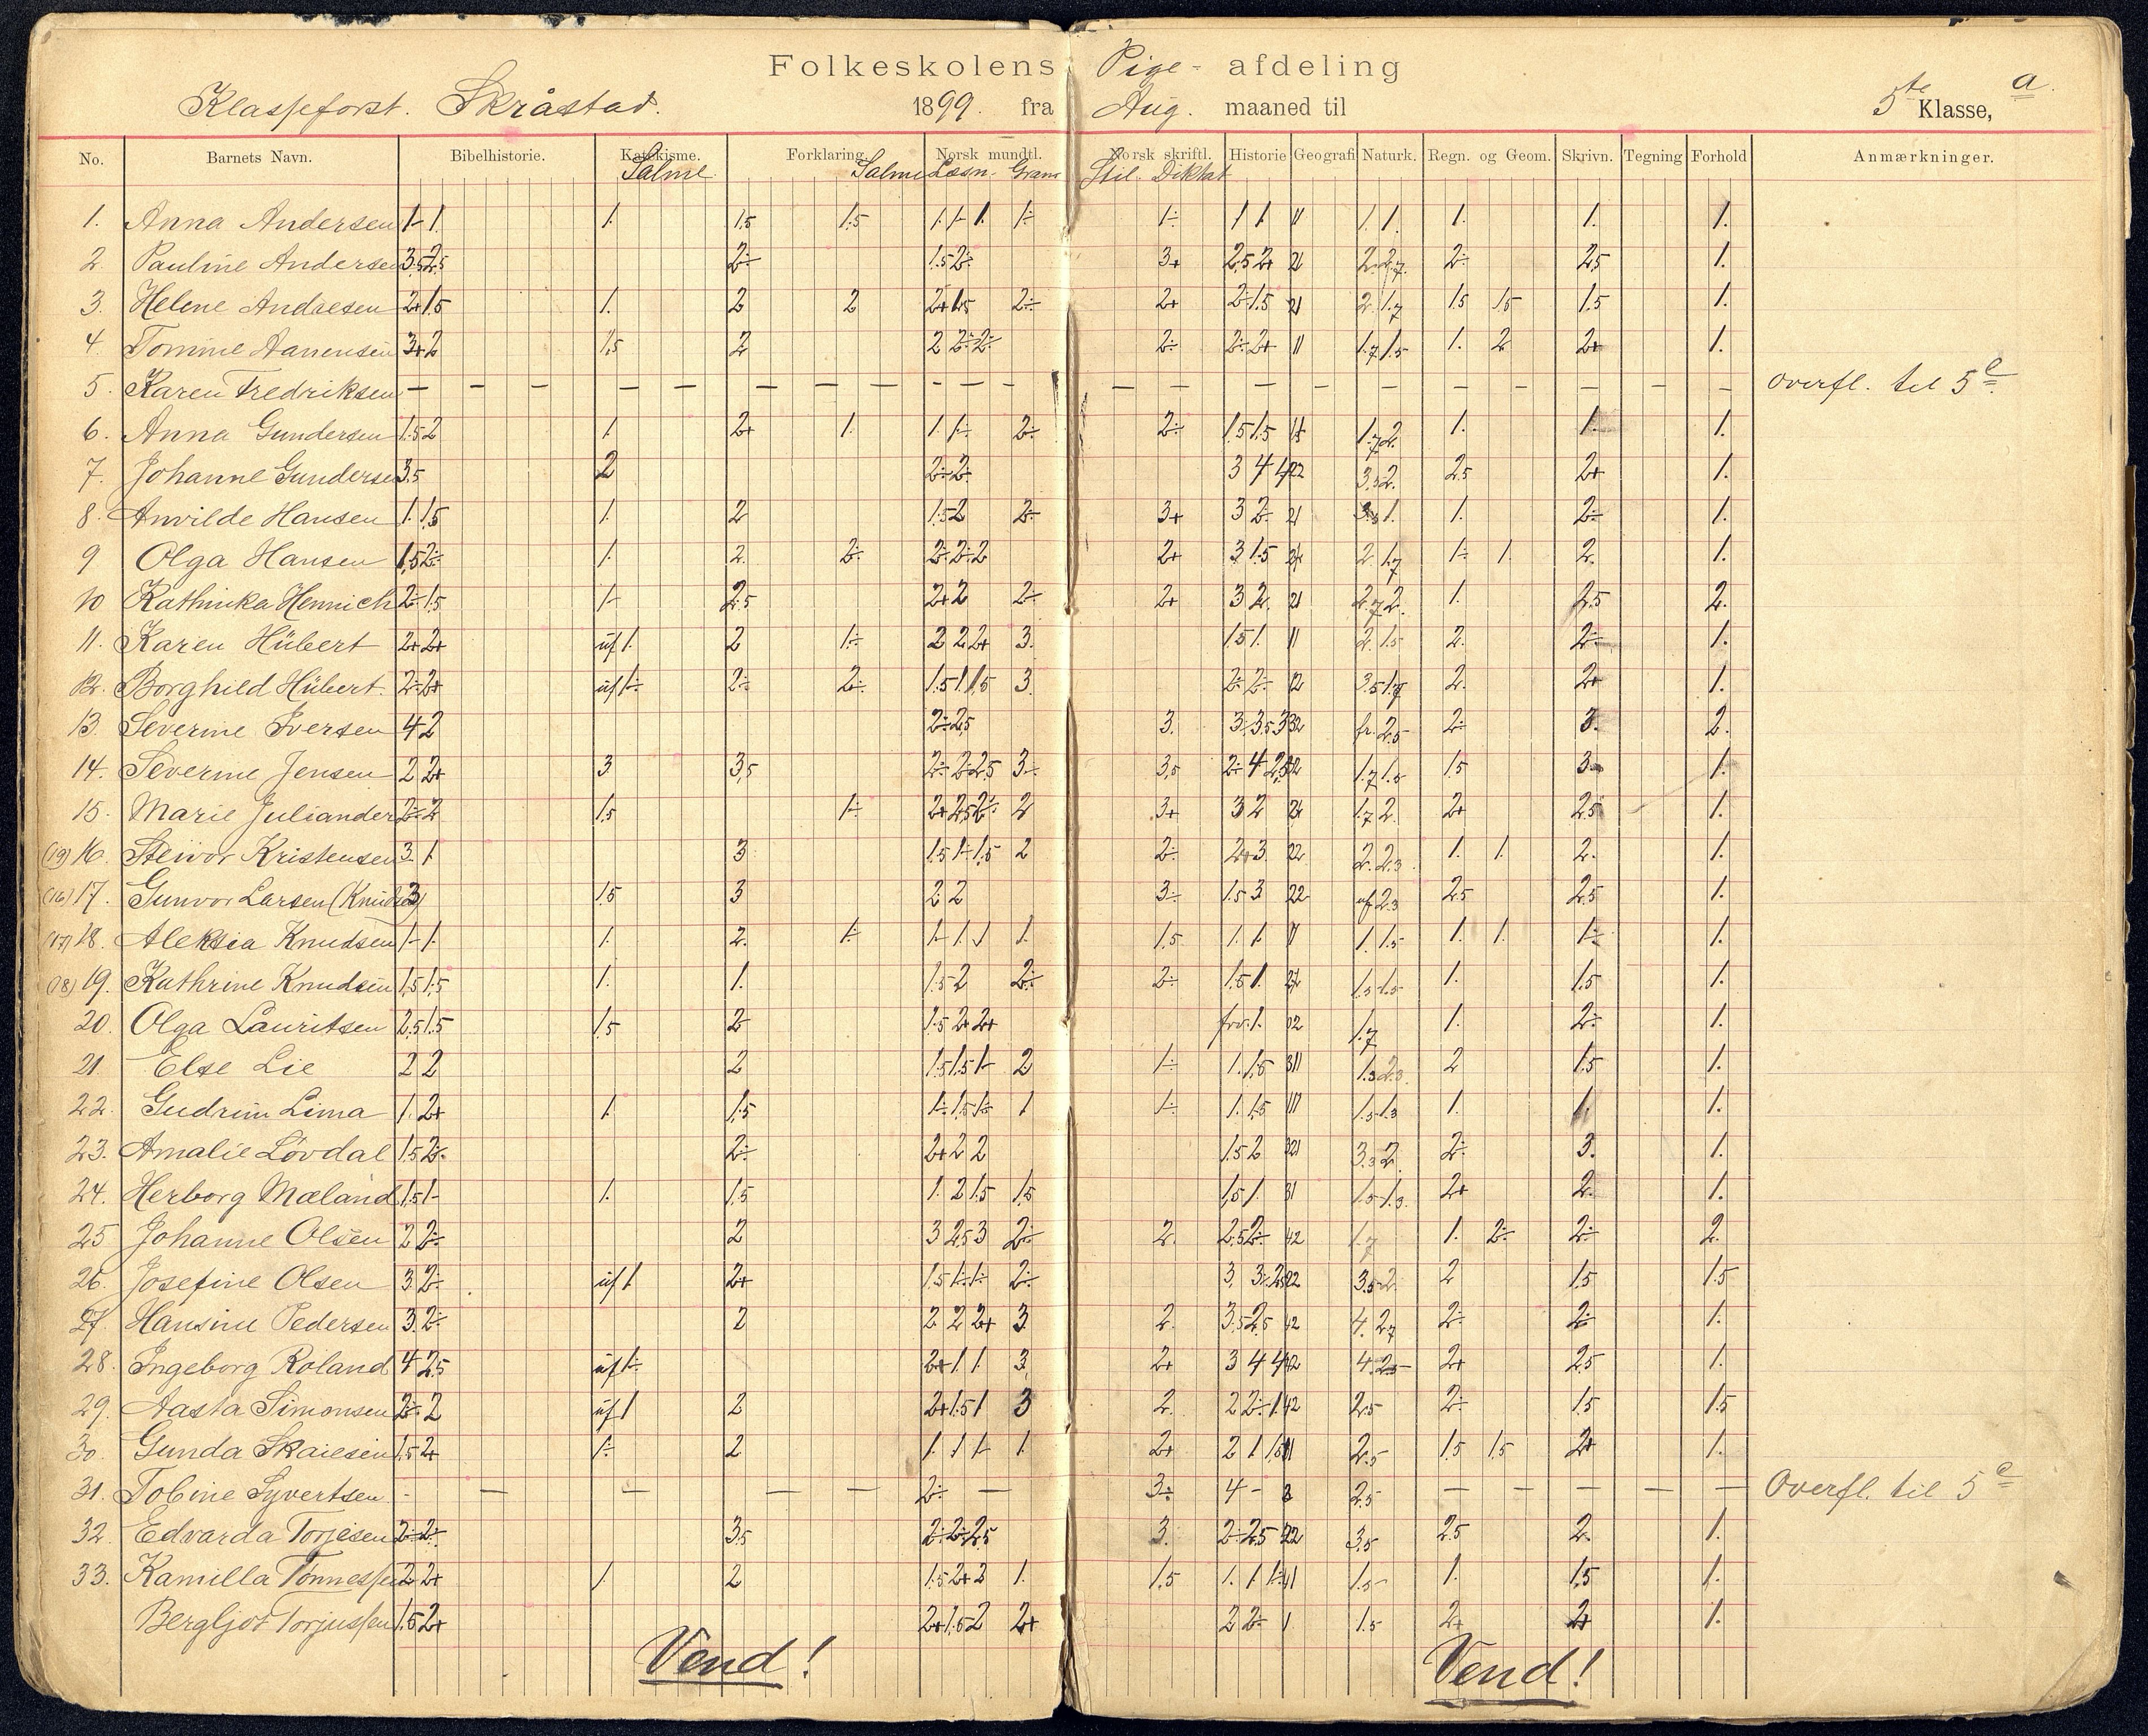 Folkeskolens Pige- afdeling
Klasseforst. Skråstad. 1899. fra Aug. maaned til 5te Klasse, a.
No. Barnets Navn. Bibelhistorie. Katekisme. Forklaring. Norsk mundtl. Norsk skriftl. Historie Geografi Naturk. Regn. og Geom. Skrivn. Tegning Forhold Anmærkninger.
Salme Salme Læsn. Gram Stil. Diktat
1. Anna Andersen 1- 1. 1. 1,5 1.5 1. 1- 1. 1÷ 1÷ 1 1. 11 1. 1. 1. 1. 1.
2. Pauline Andersen 3.5 2.5 2÷ 1.5 2÷ 3+ 2.5 2+ 21 2. 2.7. 2÷ 2.5 1.
3. Helene Andresen 2+ 1.5 1. 2 2 2+ 1.5 2÷ 2+ 2÷ 1.5 21 2. 1.7 1.5 1.5 1.5 1.
4. Tomine Aanensen 3+ 2 1,5 2 2 2÷ 2÷ 2÷ 2÷ 2+ 11 1.7 1.5 1. 2 2+ 1.
5. Karen Fredriksen — — — — — — — — — — — — overfl. til 5c
6. Anna Gundersen 1.5 2 1. 2+ 1. 1 1÷ 2÷ 2÷ 1.5 1.5 1.7 2. 1. 1. 1.
7. Johanne Gundersen 3.5 2 2÷ 2÷ 3 4 4 22 3.3 2. 2.5 2+ 1.
8. Anvilde Hansen 1. 1,5 1. 2 1.5 2 2÷ 3+ 3 2÷ 21 1. 1. 2÷ 1.
9 Olga Hansen 1,5 2÷ 1. 2. 2÷ 2÷ 2÷ 2 2+ 3 1.5 2. 1.7 1÷ 1. 2. 1.
10 Kathinka Hennich 2÷ 1.5 1- 2.5 2+ 2 2÷ 2+ 3 2. 21 2.7 2. 1. 2.5 2.
11. Karen Hübert 2+ 2+ uf 1. 2 1÷ 2 2 2+ 3. 1.5 1. 11 2. 1.5 2. 2÷ 1.
12. Borghild Hübert. 2÷ 2+ uf 1÷ 2÷ 2÷ 1.5 1 1.5 3. 2÷ 2÷ 12 3.5 1.7 2. 2+ 1.
13. Severine Iversen 4 2 2÷ 2,5 3. 3 3.5 3 32 fr. 2.5 2÷ 3. 2.
14. Severine Jensen 2 2+ 3 3,5 2÷ 2÷ 2.5 3÷ 3,5 2÷ 4 2,5 1.7 1.5 1.5 3÷ 1.
15. Marie Juliander 2÷ 2 1,5 1÷ 2+ 2,5 2÷ 2 3+ 3 2 1.7 2. 2+ 2.5 1.
(19) 16. Steivor Kristensen 3. 1. 3. 1.5 1÷ 1,5 2 2÷ 2+ 3. 22 2. 2.3. 1. 1. 2. 1.
(16) 17. Gunvor Larsen (Knudsen) 3 1.5 3 2 2 3÷ 1.5 3 22 uf 2.3 2.5 2.5 1.
(17) 18. Aleksia Knudsen 1- 1. 1. 2. 1÷ 1- 1. 1 1. 1,5 1. 1. 11 1. 1.5 1. 1. 1÷ 1.
(18) 19. Kathrine Knudsen 1,5 1.5 1. 1. 1.5 2 2÷ 2÷ 1.5 1. 1.5 1.5 1. 1.5 1.
20. Olga Lauritsen 2,5 1.5 1.5 2 1.5 2 2+ frv. 1. 1.7 1. 2÷ 1.
21. Else Lie 2 2 2 1.5 1.5 1- 2 1÷ 1. 1,5 311 1.3 2.3. 2 1.5 1.
22. Gudrun Lima 1. 2+ 1. 1,5 1÷ 1,5 1÷ 1 1÷ 1. 1.5 111 1.5 1.3 1. 1. 1.
23. Amalie Lövdal 1.5 2÷ 2÷ 2+ 2 2 1.5 2 321 3.3 2. 2÷ 3. 1.
24. Herborg Mæland 1,5 1- 1. 1,5 1. 2 1.5 1,5 1,5 1. 31 1.5 1.3. 2+ 2. 1.
25 Johanne Olsen 2 2÷ 2 3 2.5 3 2÷ 2. 2.5 2÷ 42 1.7 1. 2÷ 2÷ 2.
26. Josefine Olsen 3 2÷ uf 1 2+ 1.5 1÷ 1÷ 2÷ 3. 3÷ 2.5 22 3.5 2. 2 1.5 1.5
27. Hansine Pedersen 3. 2÷ 2 2 2 2+ 3 2. 3.5 2.5 42 4. 2.7 2÷ 2÷ 1.
28. Ingeborg Roland 4 2.5 uf 1÷ 2+ 1 1 3. 2+ 3 4 4 42 4. 2.5 2+ 2.5 1.
29. Aasta Simonsen 2÷ 2 uf 1 2 2+ 1.5 1 3 2. 2 2÷ 1. 42 2.5 2÷ 1.5 1.5
30. Gunda Skaiesen 1,5 2+ 1÷ 2 1. 1 1- 1. 2+ 2 1 1,5 2.5 1.5 1.5 2+ 1.
31. Tobine Syvertsen - — — — — 2÷ — 3÷ 4 - 3 2.5 — — — — — Overfl. til 5c
32. Edvarda Torjesen 2÷ 2÷ 3.5 2÷ 2÷ 2.5 3. 2÷ 2.5 3.5 2.5 2. 1.
33. Kamilla Tønnessen 2 2+ 1. 2 1.5 2+ 2 1. 1,5 1. 1 1÷ 1.5 1. 1,5 1.
Bergljot Torjussen 1.5 2+ 2+ 1.5 2 2+ 2 2÷ 1 1.5 2+ 2+ 1.
Vend! Vend!